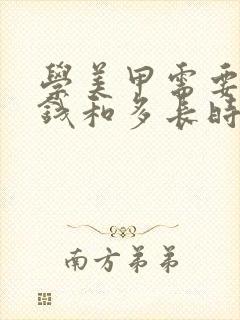 學美甲需要
錢和多長時
南方弟弟